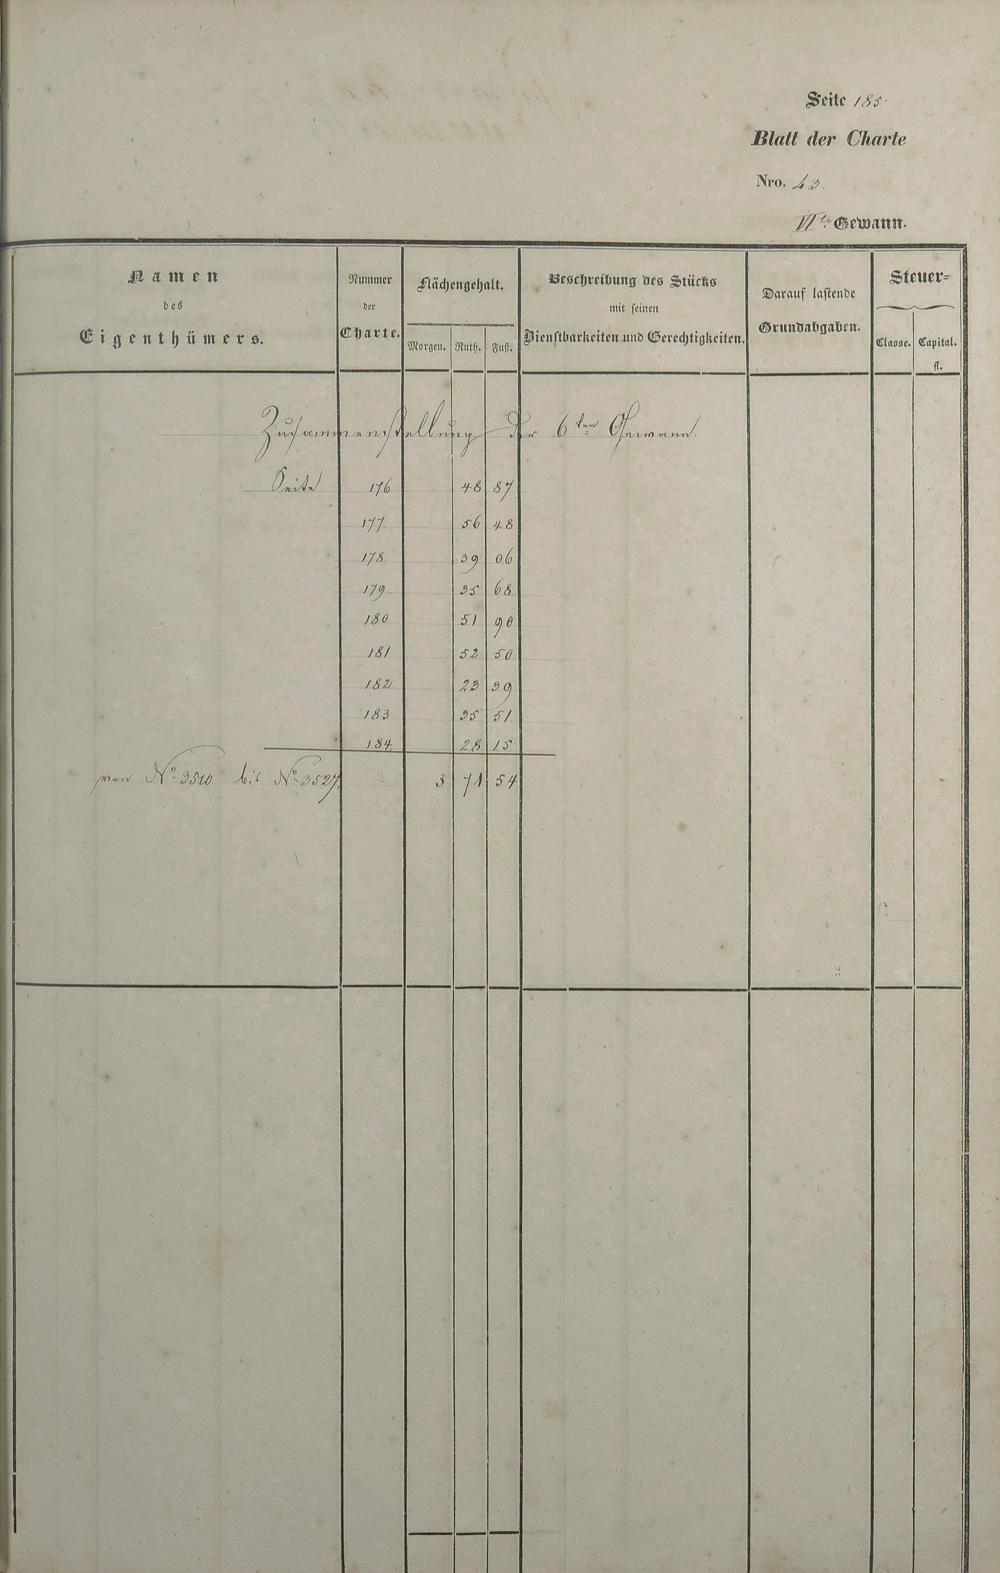 Seite 185.
Blatt der Charte
Nro. 43.
VIte Gewann.
Namen
des
Eigenthümers.
Nummer
der
Charte.
Flächengehalt.
Morgen. Ruth. Fuß.
Beschreibung des Stücks
mit seinen
Dienstbarkeiten und Gerechtigkeiten.
Darauf lastende
Grundabgaben.
Steuer=
Classe. Capital.
fl.
Zusammenstellung der 6ten Gewann.
Seite 176 48 87
177. 56 48
178 39 06
179. 35 68.
180 51 90
181 52 50.
182 23 39
183 35 51
184. 28 15
von No. 3510 bis No. 3527. 3 71 54